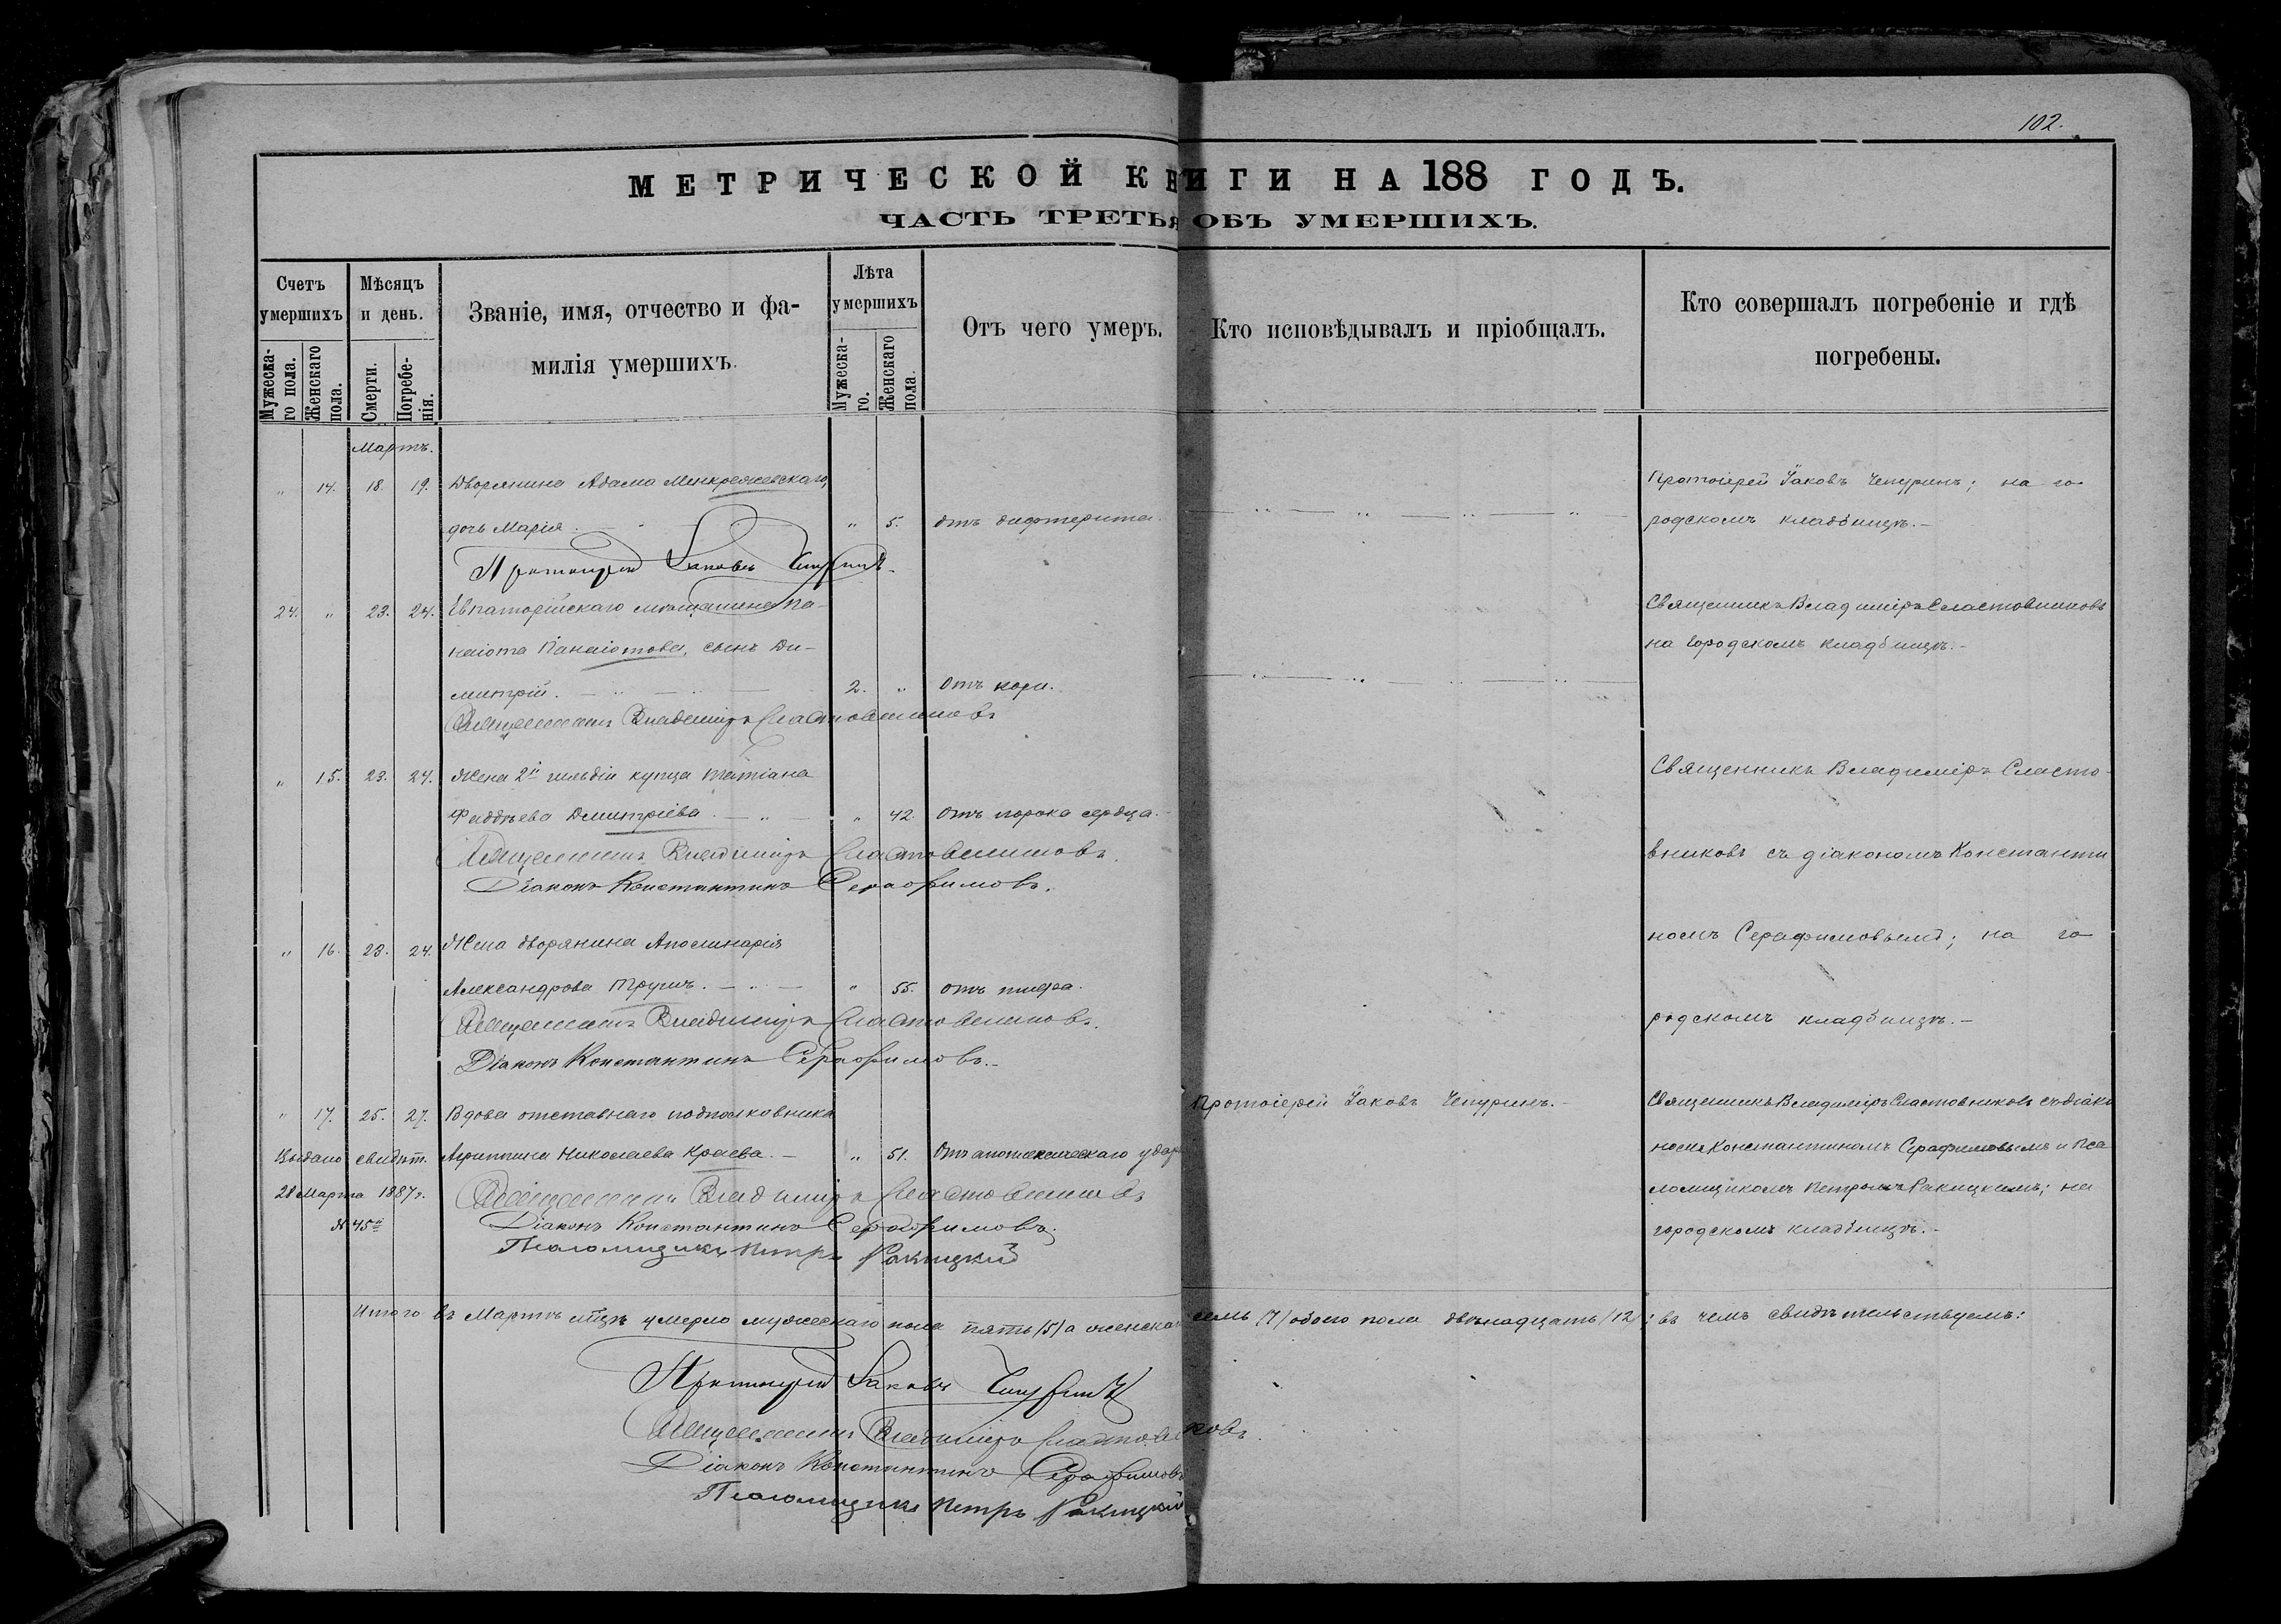 102.
МЕТРИЧЕСКОЙ КНИГИ НА 188 ГОДЪ.
ЧАСТЬ ТРЕТЬЯ ОБЪ УМЕРШИХЪ.
Счетъ умершихъ
Мужеска-го пола.
Женскаго пола.
Мѣсяцъ и день.
Смерти.
Погребе-нія.
Званіе, имя, отчество и фа-
милія умершихъ.
Лѣта умершихъ
Мужеска-го.
Женскаго пола.
Отъ чего умеръ.
Кто исповѣдывалъ и пріобщалъ.
Кто совершалъ погребеніе и гдѣ
погребены.
Мартъ.
" 14. 18. 19. Дворянина Адама
дочь Марія. " 5. отъ дифтерита
Протоіерей Іаковъ Чепуринъ; на го-
родскомъ кладбищѣ.-
Протоіерей Іаковъ Чепуринъ.
24. " 23. 24. Евпаторійскаго мѣщанина Па-
наіота Панаіотова, сынъ Ди-
митрій. 2. " Отъ кори.
Священникъ Владиміръ Сластовниковъ
на городскомъ кладбищѣ.-
Священникъ Владиміръ Сластовниковъ
" 15. 23. 24. Жена 2й гильдіи купца Татіана
Фаддѣева Дмитріева. " 42. Отъ порока сердца.-
Священникъ Владиміръ Сластовниковъ.
Діаконъ Константинъ Серафимовъ.
Священникъ Владиміръ Сласто-
вниковъ съ діакономъ Константи
номъ Серафимовымъ; на го-
родскомъ кладбищѣ.-
" 16. 23. 24. Жена дворянина Аполинарія
Александрова " 55. отъ тифа.
Священникъ Владиміръ Сластовниковъ.
Діаконъ Константинъ Серафимовъ.-
" 17. 25. 27. Вдова отставнаго подполковника
Агриппина Николаева Краева.- " 51. Отъ апоплексическаго удара
Протоіерей Іаковъ Чепуринъ.-
Священникъ Владиміръ Сластовниковъ съ діако
номъ Константиномъ Серафимовымъ и Пса
ломщикомъ Петромъ Ракицкимъ; на
городскомъ кладбищѣ.-
Выдано свидѣт.
28 Марта 1887 г.
N 45й
Священникъ Владиміръ Сластовниковъ
Діаконъ Константинъ Серафимовъ.
Псаломщикъ Петръ Ракицкій
Итого въ Мартѣ мцѣ умерло мужескаго пола пять (5) а женска семь (7) обоего пола двѣнадцать (12); въ чемъ свидѣтельствуемъ:
Протоіерей Іаковъ Чепуринъ
Священникъ Владиміръ Сластовниковъ.
Діаконъ Константинъ Серафимовъ
Псаломщикъ Петръ Ракицкій